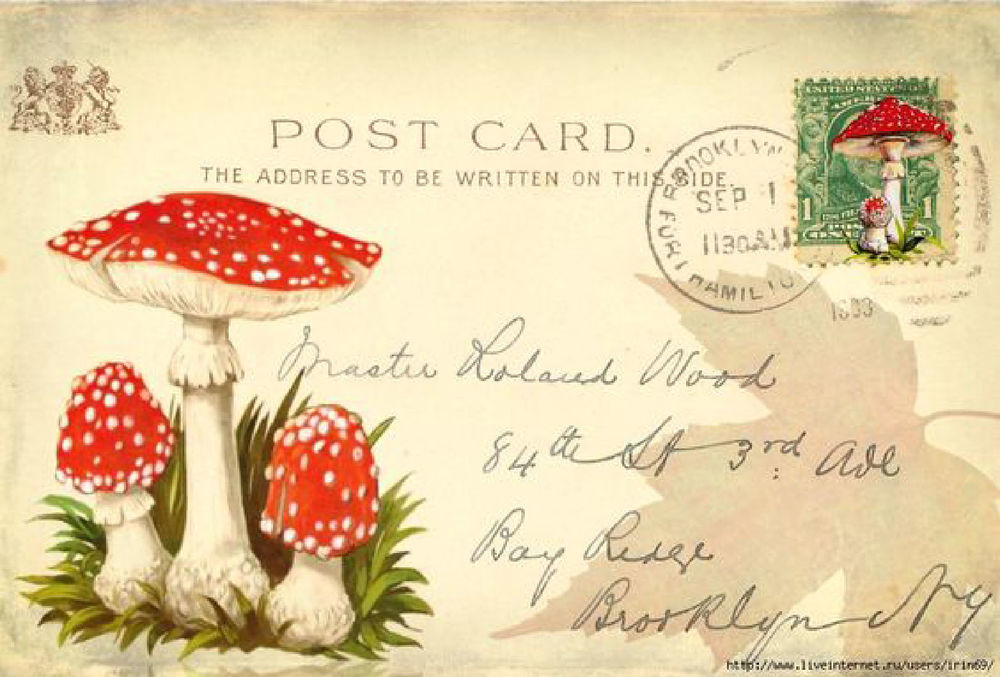 POST CARD.
THE ADDRESS TO BE WRITTEN ON THIS SIDE.
BROOKLYN
SEP 1
1130 AM
FORT HAMILTO
UNITED STATES
AMER
1 1
Master Roland Wood
84th St 3rd Ave
Bay Ridge
Brooklyn NY
http://www.liveinternet.ru/users/irin69/